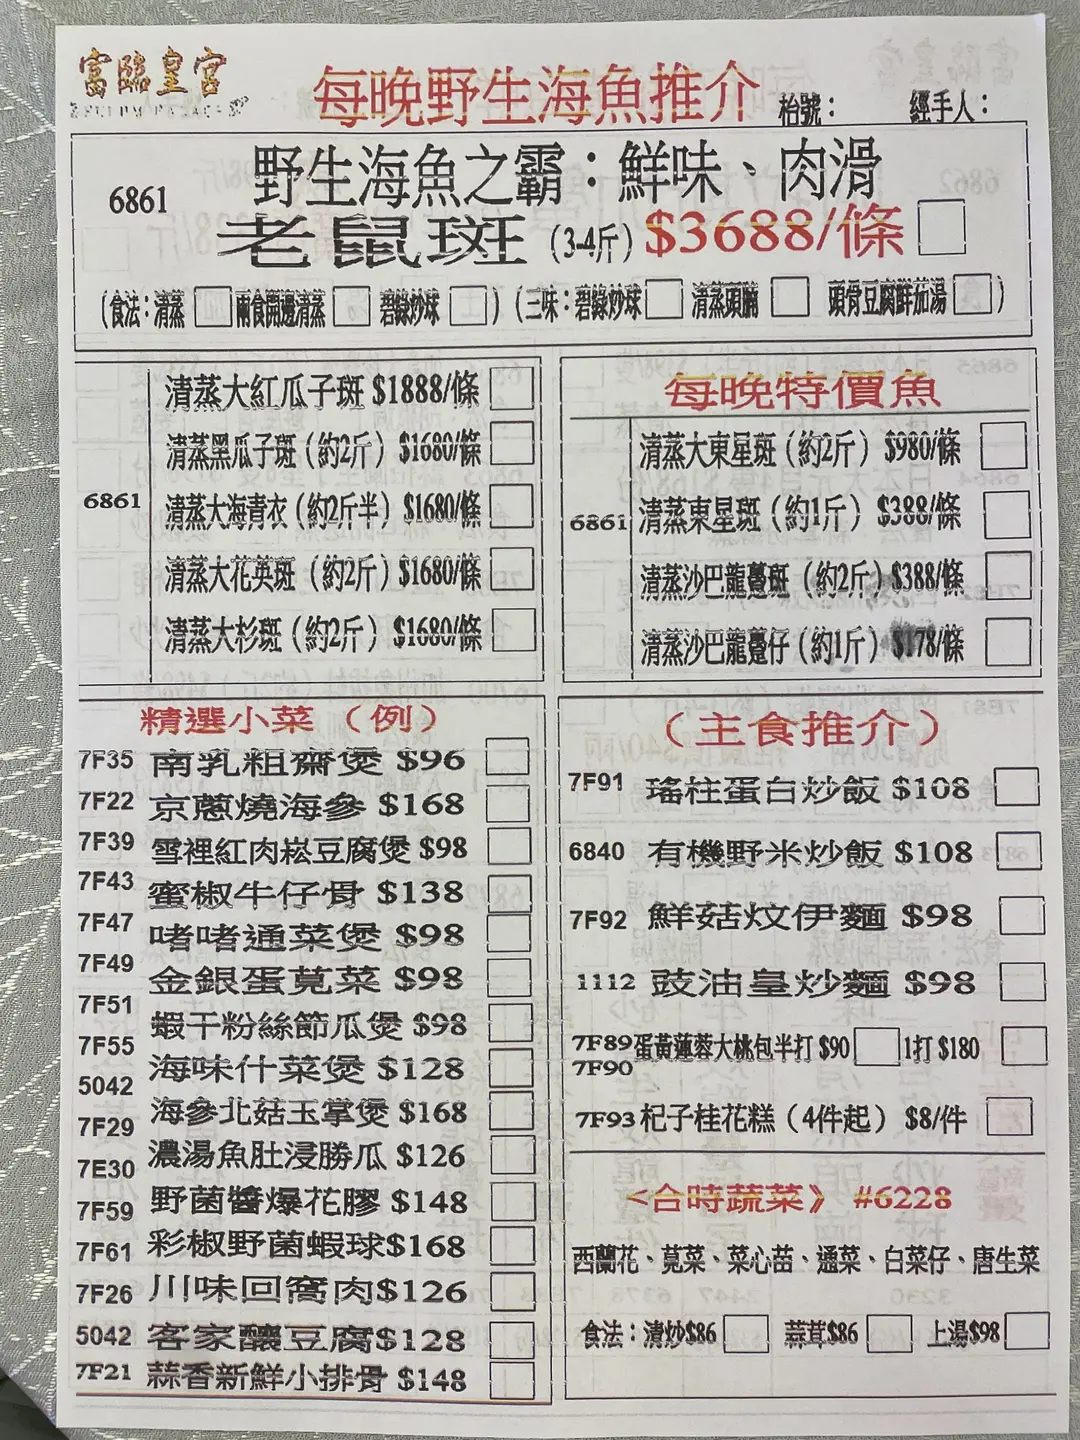 富臨皇宮
每晚野生海魚推介
枱號：
經手人：
野生海魚之霸：鮮味、肉滑
6861
老鼠斑（3-4斤）$3688/條
（食法：清蒸 兩食開邊清蒸 碧綠炒球 ）（三味：碧綠炒球 清蒸頭腩 頭骨豆腐鮮茄湯 ）
6861
清蒸大紅瓜子斑 $1888/條
清蒸黑瓜子斑（約2斤）$1680/條
清蒸大海青衣（約2斤半）$1680/條
清蒸大花英斑（約2斤）$1680/條
清蒸大杉斑（約2斤）$1680/條
每晚特價魚
6861
清蒸大東星斑（約2斤） $980/條
清蒸東星斑（約1斤） $388/條
清蒸沙巴龍躉斑（約2斤）$388/條
清蒸沙巴龍躉仔（約1斤）$178/條
精選小菜（例）
7F35 南乳粗齋煲 $96
7F22 京蔥燒海參 $168
7F39 雪裡紅肉崧豆腐煲 $98
7F43 蜜椒牛仔骨 $138
7F47 啫啫通菜煲 $98
7F49 金銀蛋莧菜 $98
7F51 蝦干粉絲節瓜煲 $98
7F55 海味什菜煲 $128
5042 海參北菇玉掌煲 $168
7F29 濃湯魚肚浸勝瓜 $126
7E30 野菌醬爆花膠 $148
7F59 彩椒野菌蝦球$168
7F61 川味回窩肉$126
7F26 客家釀豆腐$128
5042 蒜香新鮮小排骨 $148
7F21
（主食推介）
7F91 瑤柱蛋白炒飯 $108
6840 有機野米炒飯 $108
7F92 鮮菇炆伊麵 $98
1112 豉油皇炒麵 $98
7F89 蛋黃蓮蓉大桃包半打 $90 1打 $180
7F90
7F93 杞子桂花糕（4件起） $8/件
<合時蔬菜》 #6228
西蘭花、莧菜、菜心苗、通菜、白菜仔、唐生菜
食法：清炒$86 蒜茸$86 上湯$98